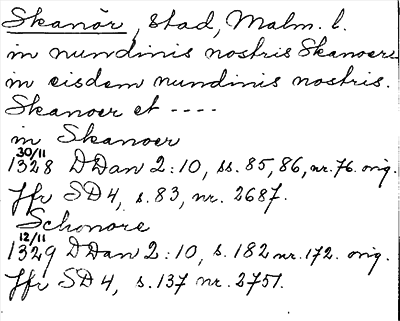 Skanör, Stad, Malm. l.
in nundinis nostris Skanoer
in eisdem nundinis nostris.
Skanoer et ----
in Skanoer
30/11
1328 DDan 2:10, ss. 85, 86, nr. 76. orig.
Jfr SD 4, s. 83, nr. 2687.
Schonore
12/11
1329 DDan 2:10, s. 182 nr. 172. orig.
Jfr SD 4, s. 137 nr. 2751.